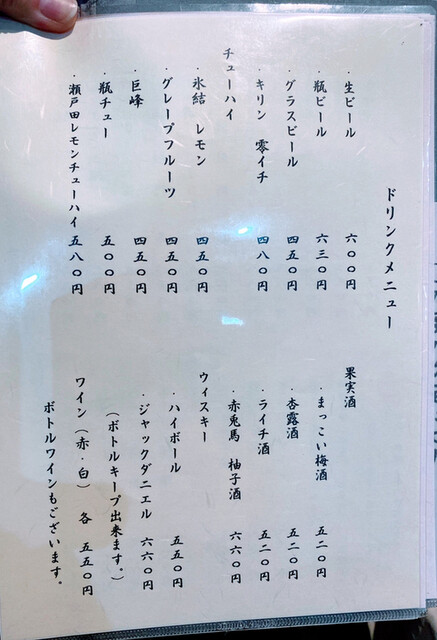 ドリンクメニュー
・生ビール 六〇〇円
・瓶ビール 六三〇円
・グラスビール 四五〇円
・キリン 零イチ 四八〇円
チューハイ
・氷結 レモン 四五〇円
・グレープフルーツ 四五〇円
・巨峰 四五〇円
・瓶チュー 五〇〇円
・瀬戸田レモンチューハイ 五八〇円
果実酒
・まっこい梅酒 五二〇円
・杏露酒 五二〇円
・ライチ酒 五二〇円
・赤兎馬 柚子酒 六六〇円
ウィスキー
・ハイボール 五五〇円
・ジャックダニエル 六六〇円
（ボトルキープ出来ます。）
ワイン（赤・白） 各 五五〇円
ボトルワインもございます。